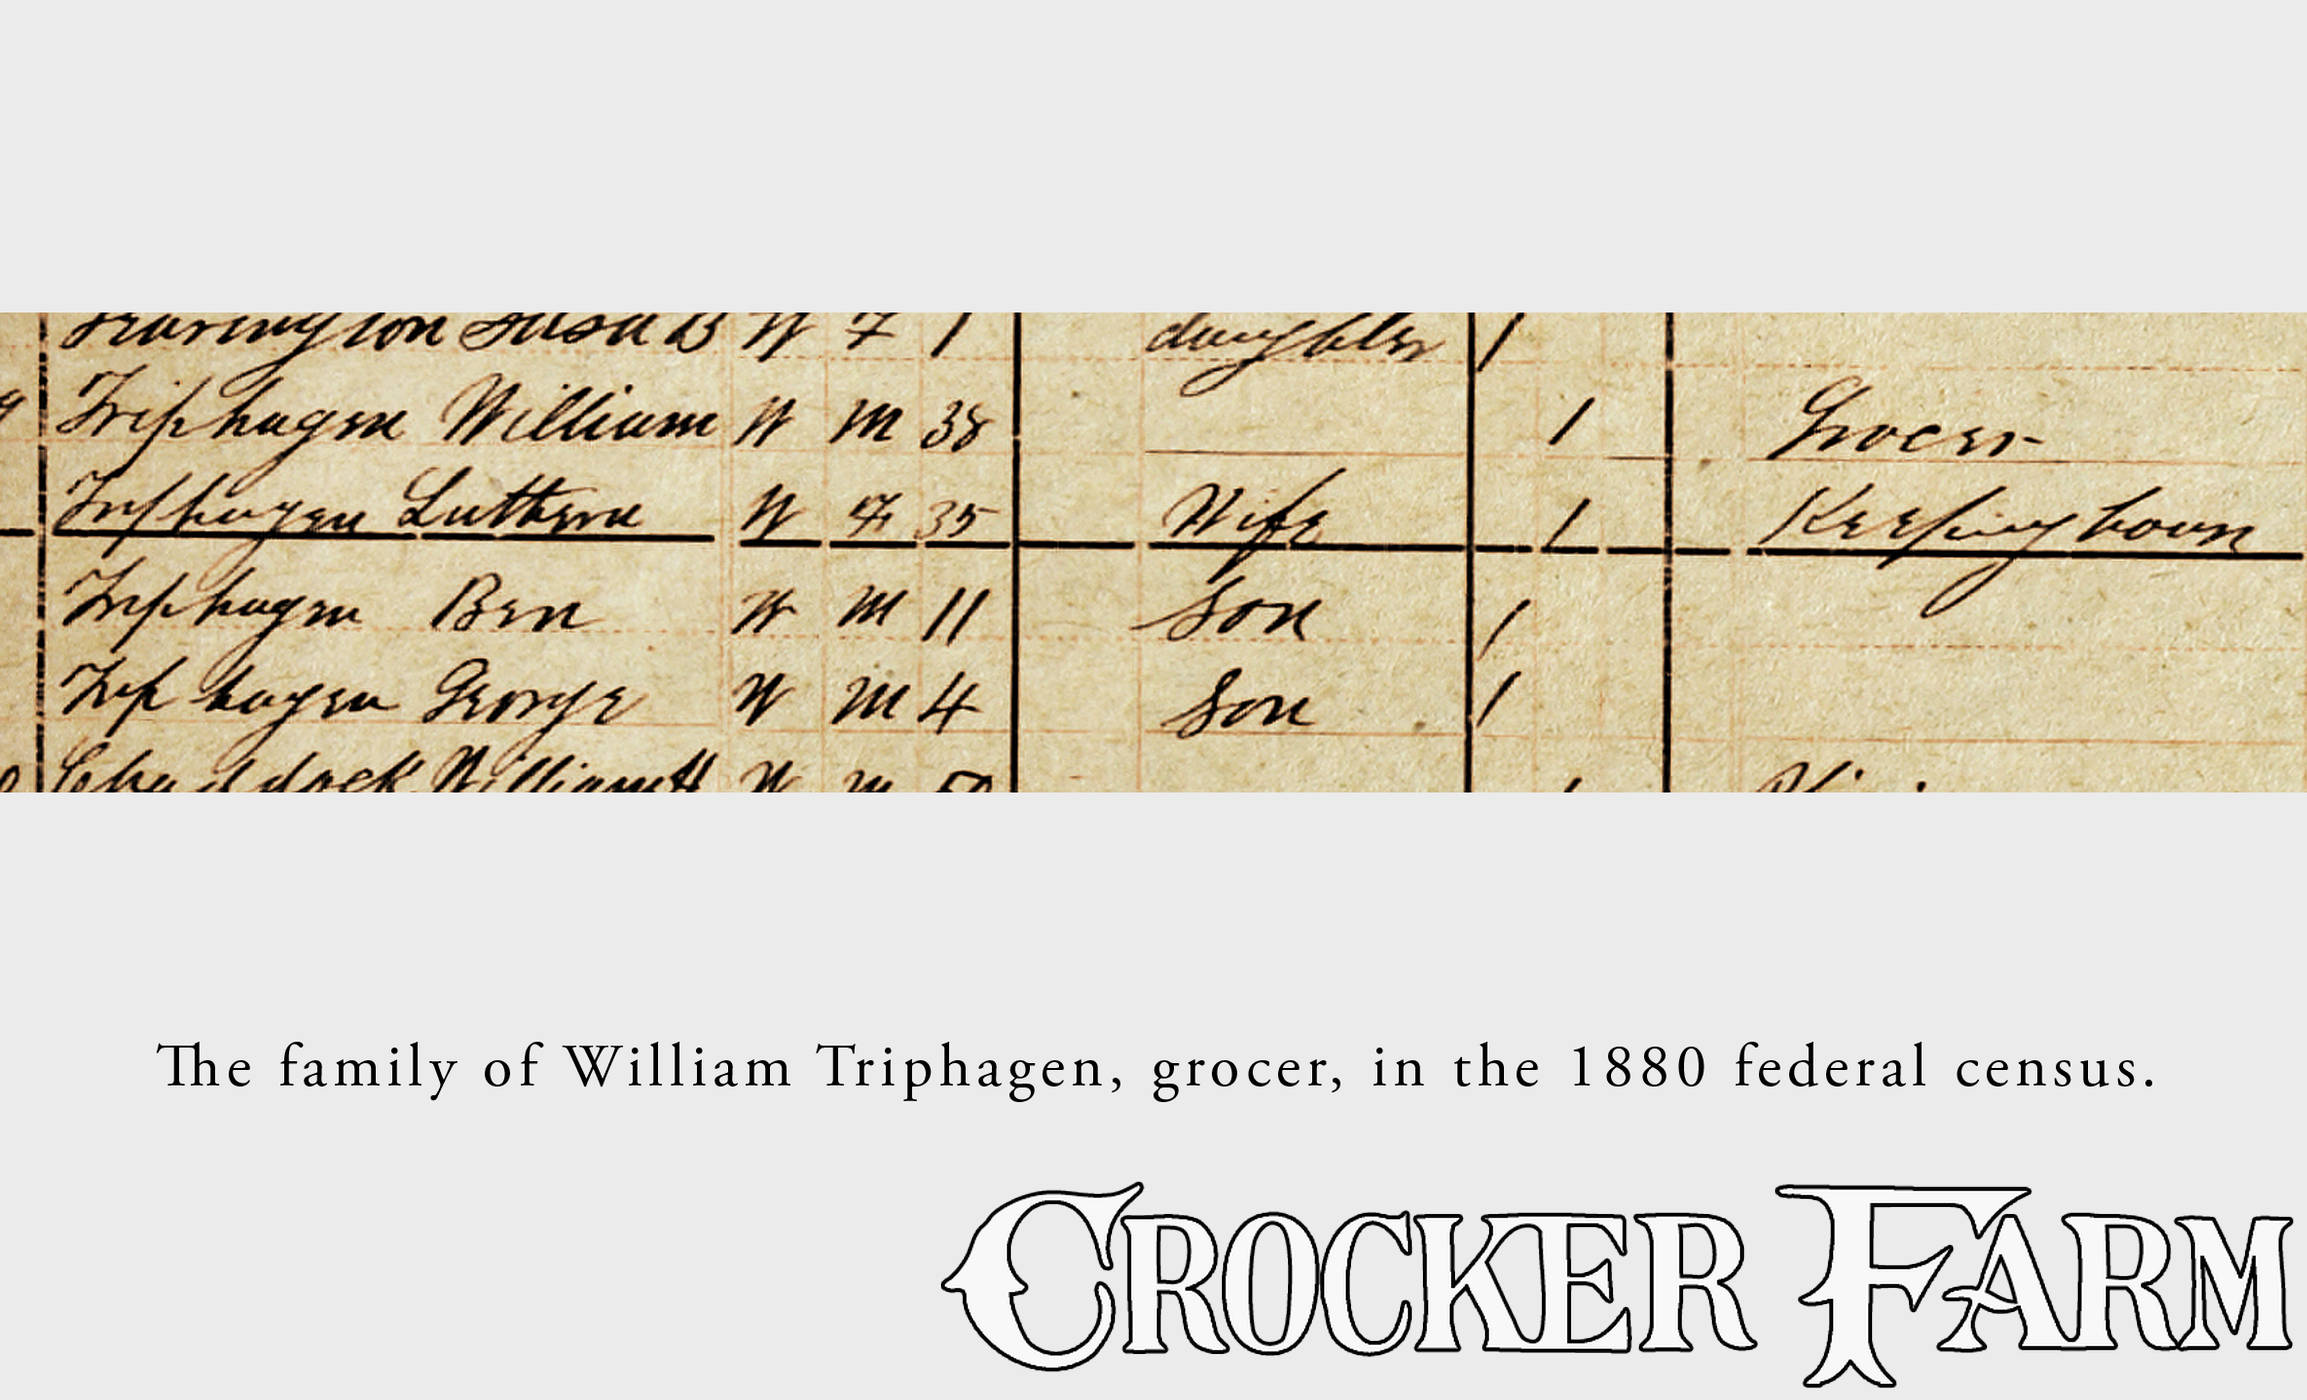 W 7 1 daughter 1
Triphagen William W M 38 1 Grocer
Triphagen Luthera W F 35 Wife 1 Keeping house
Triphagen Ben W M 11 Son 1
Triphagen George W M 4 Son 1
Chaddock William H W M
The family of William Triphagen, grocer, in the 1880 federal census.
CROCKER FARM